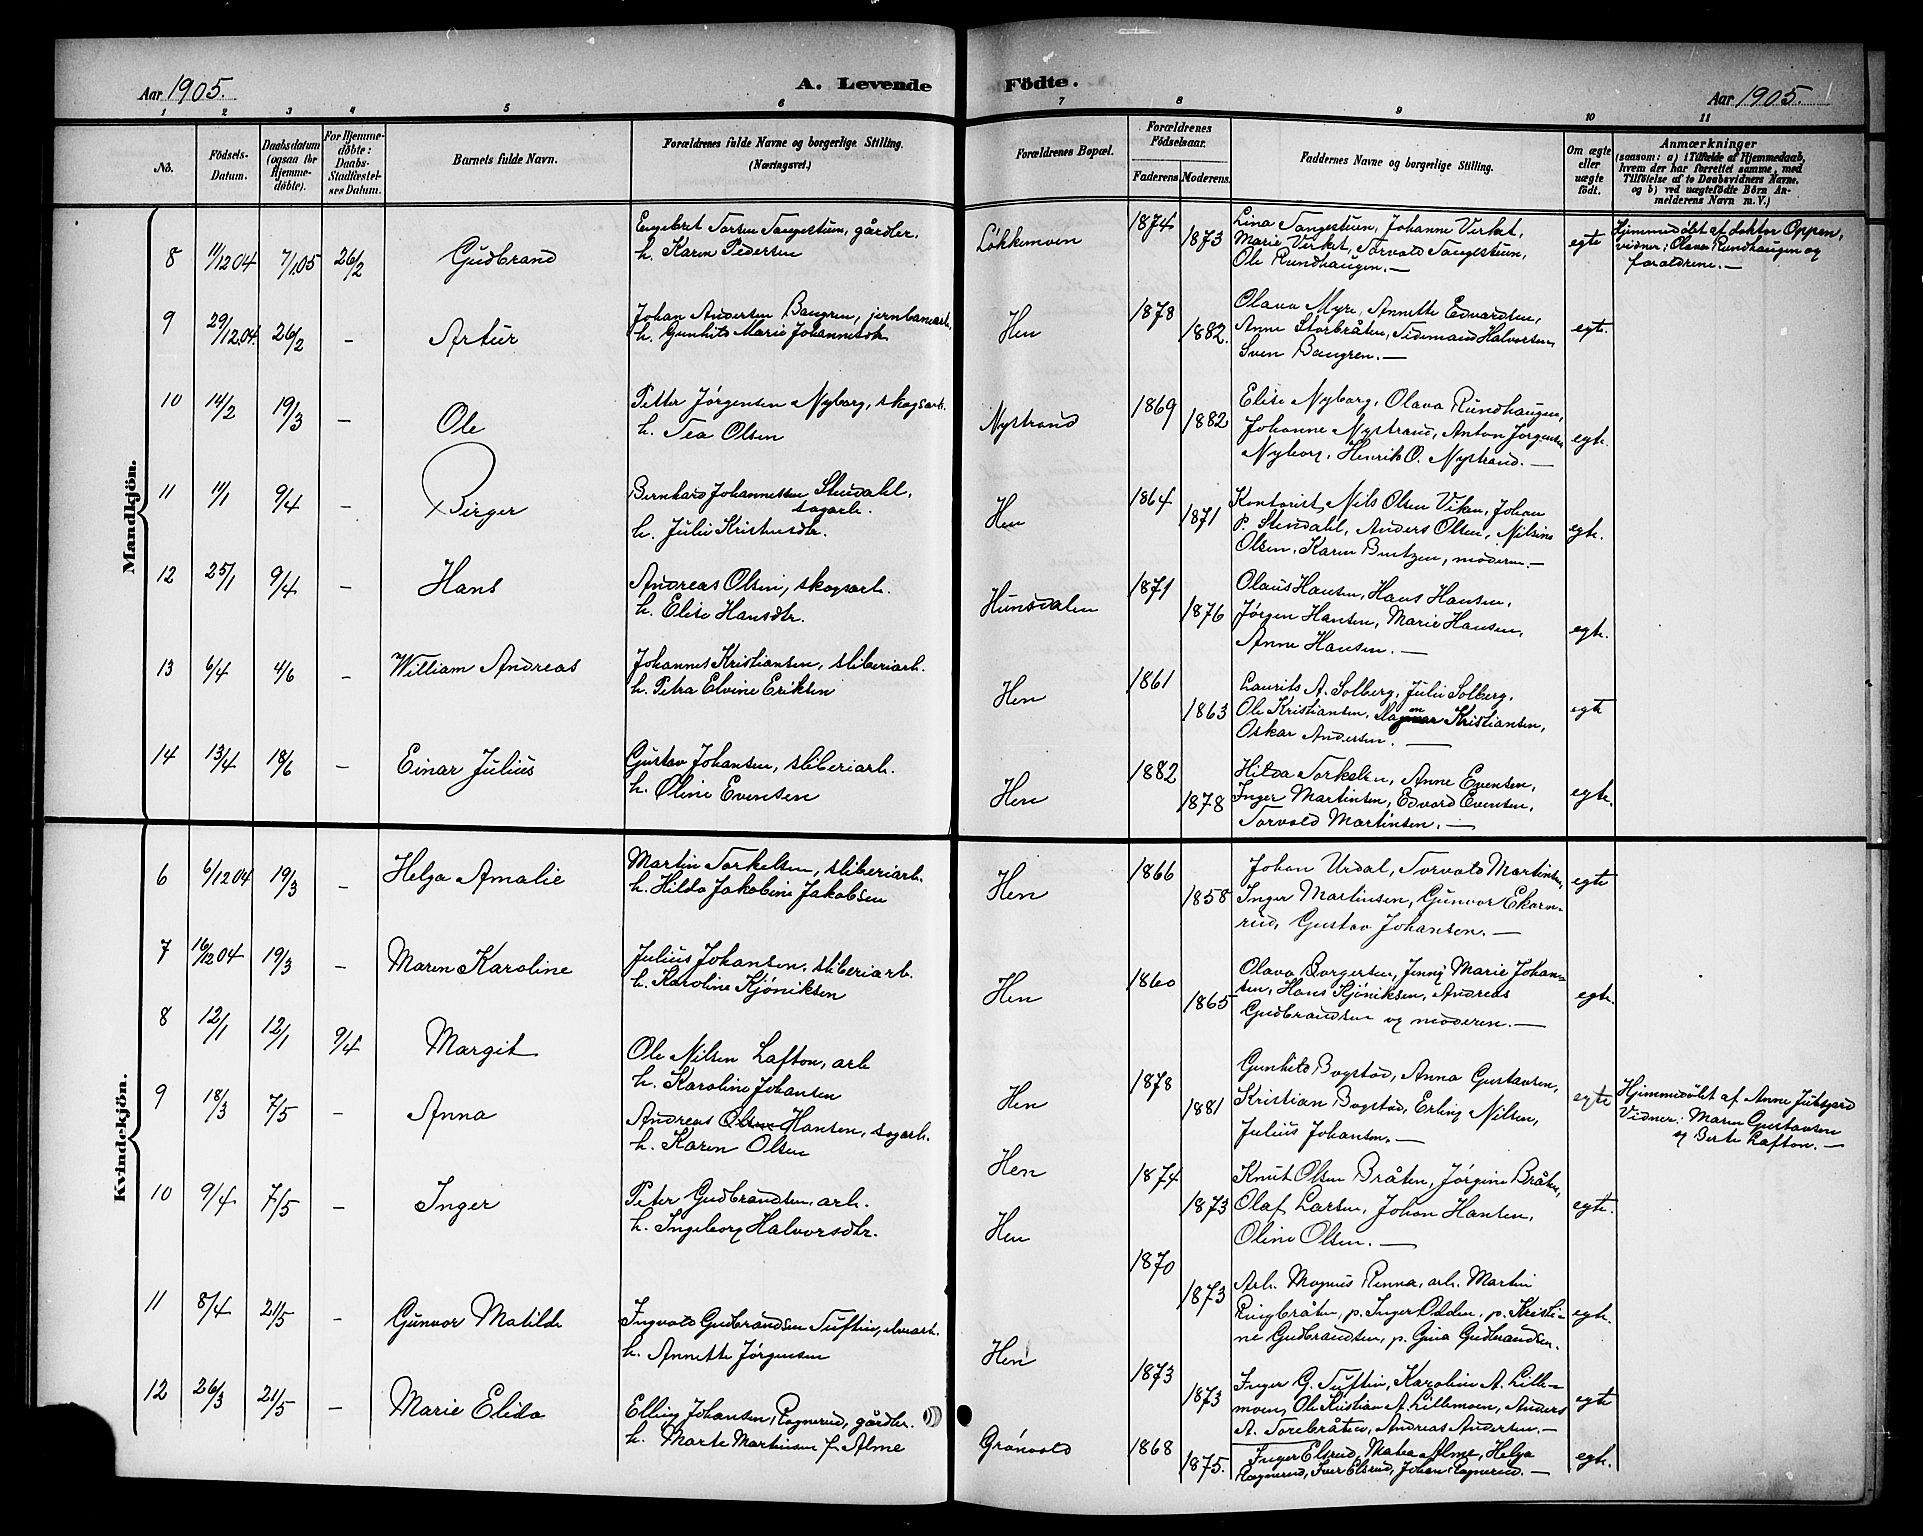 Aar 1905.
A. Levende
Födte.
Aar 1905.
1 2 3 4 5 6 7 8 9 10 11
No.
Födsels-Datum.
Daabsdatum (ogsaa for Hjemme-döbte).
For Hjemme-döbte: Daabs-Stadfæstel-ses Datum.
Barnets fulde Navn.
Forældrenes fulde Navne og borgerlige Stilling. (Næringsvei.)
Forældrenes Bopæl.
Forældrenes Födselsaar.
Faderens. Moderens.
Faddernes Navne og borgerlige Stilling.
Om ægte eller uægte födt.
Anmærkninger
(saasom: a) i Tilfælde af Hjemmedaab, hvem der har forrettet samme, med Tilföielse af to Daabsvidners Navne, og b) ved uægtefödte Börn An-melderens Navn m. V.)
Mandkjön.
8 11/12 04 7/1 05 26/2 Gudbrand
Engebret Torsen Tangestuen, gårdbr.
h. Karen Pedersen
Løkkemoen 1874 1873
Lina Tangestuen, Johanne Virket,
Marie Virket, Torvald Tangestuen,
Ole Rundhaugen. —
egte
Hjemmedøbt af doktor Oppen,
vidner: Olava Rundhaugen og
forældrene. —
9 29/12 04. 26/2 – Artur
Johan Andersen Bangren, jernbanearb.
h. Gunhild Marie Johannesdtr.
Hen 1878 1882.
Olava Myre, Annette Edvardsen,
Anne Storbråten, Tidemand Halvorsen,
Sven Bangren. —
egte.
10 14/2 19/3 – Ole
Petter Jørgensen Nyborg, skogsarb.
h. Tea Olsen
Nystrand 1869 1882
Elise Nyborg, Olava Rundhaugen,
Johanne Nystrand, Anton Jørgensen
Nyborg, Henrik O. Nystrand. —
egte.
11 11/1 9/4 – Birger
Bernhard Johannessen Stendahl,
sagarb.
h. Julie Kristensdtr.
Hen 1864 1871
Kontorist Nils Olsen Viken, Johan
P. Stendahl, Anders Olsen, Nilsine
Olsen, Karen Bentzen, moderen. —
egte.
12 25/1 9/4 – Hans
Andreas Olsen, skogsarb.
h. Elise Hansdtr.
Hunsdalen 1871 1876
Olaus Hansen, Hans Hansen,
Jørgen Hansen, Marie Hansen,
Anne Hansen. —
egte.
13 6/4 4/6 – William Andreas
Johannes Kristiansen, sliberiarb.
h. Petra Elvine Eriksen
Hen 1861 1863
Laurits A. Solberg, Julie Solberg,
Ole Kristiansen, Kristiansen,
Oskar Andersen. —
egte
14 13/4 18/6 – Einar Julius
Gustav Johansen, sliberiarb.
h. Oline Evensen
Hen 1882 1878
Hilda Torkelsen, Anne Evensen,
Inger Martinsen, Edvard Evensen,
Torvald Martinsen. —
egte.
Kvindekjön.
6 6/12 04 19/3 – Helga Amalie
Martin Torkelsen, sliberiarb.
h. Hilda Jakobine Jakobsen
Hen 1866 1858
Johan Urdal, Torvald Martinsen,
Inger Martinsen, Gunvor Ekorn-
rud, Gustav Johansen. —
egte
7 16/12 04 19/3 – Maren Karoline
Julius Johansen, sliberiarb.
h. Karoline Kjøniksen
Hen 1860 1865
Olava Borgersen, Jenny Marie Johan-
sen, Hans Kjøniksen, Andreas
Gudbrandsen og moderen. —
egte.
8 12/1 12/1 9/4 Margit
Ole Nilsen Lafton, arb
h. Karoline Johansen
Hen 1878 1881
Gunhild Bogstad, Anna Gustavsen,
Kristian Bogstad, Erling Nilsen,
Julius Johansen. —
egte
Hjemmedøbt af Anne
Vidner: Maren Gustavsen
og Berte Lafton. —
9 18/3 7/5 – Anna
Andreas Olsen Hansen, sagarb.
h. Karen Olsen
Hen 1874 1873
Knut Olsen Bråten, Jørgine Bråten,
Olaf Larsen, Johan Hansen,
Oline Olsen. —
egte.
10 9/4 7/5 – Inger
Peter Gudbrandsen, arb.
h. Ingeborg Halvorsdtr.
Hen 1870 1873
Arb. Magnus Renna, arb. Martin
Ringbråten, p. Inger Odden, p. Kristi-
ne Gudbrandsen, p. Gina Gudbrandsen.
egte.
11 8/4 21/5 – Gunvor Matilde
Ingvald Gudbrandsen Tuftin, elvearb.
h. Annette Jørgensen
Hen 1873 1873
Inger G. Tuftin, Karoline A. Lille-
moen, Ole Kristian A. Lillemoen, Anders
A. Torebråten, Andreas Andersen. —
egte
12 26/3 21/5 – Marie Elida
Elling Johansen Ragnerud, gårdbr.
h. Marte Martinsen f. Alme
Grønvold 1868 1875.
Inger Elsrud, Matea Alme, Helga
Ragnerud, Iver Elsrud, Johan Ragnerud. —
egte.